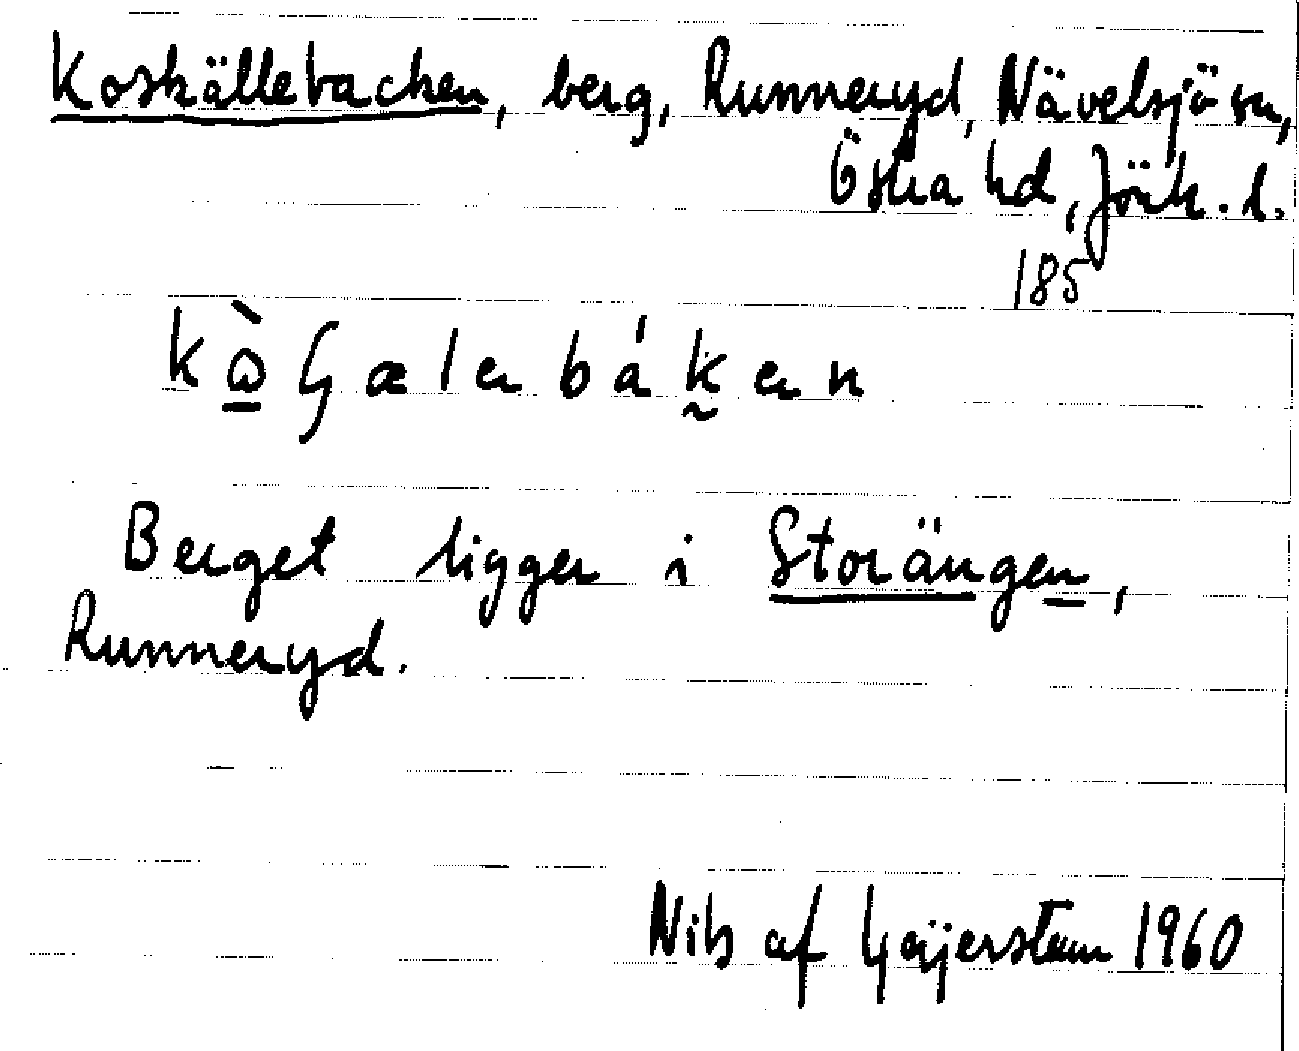 Koskällebacken, berg, Runneryd, Nävelsjö sn,
Östra hd, Jönk. l.
185
Berget ligger i Storängen,
Runneryd.
Nils af Geijerstam 1960